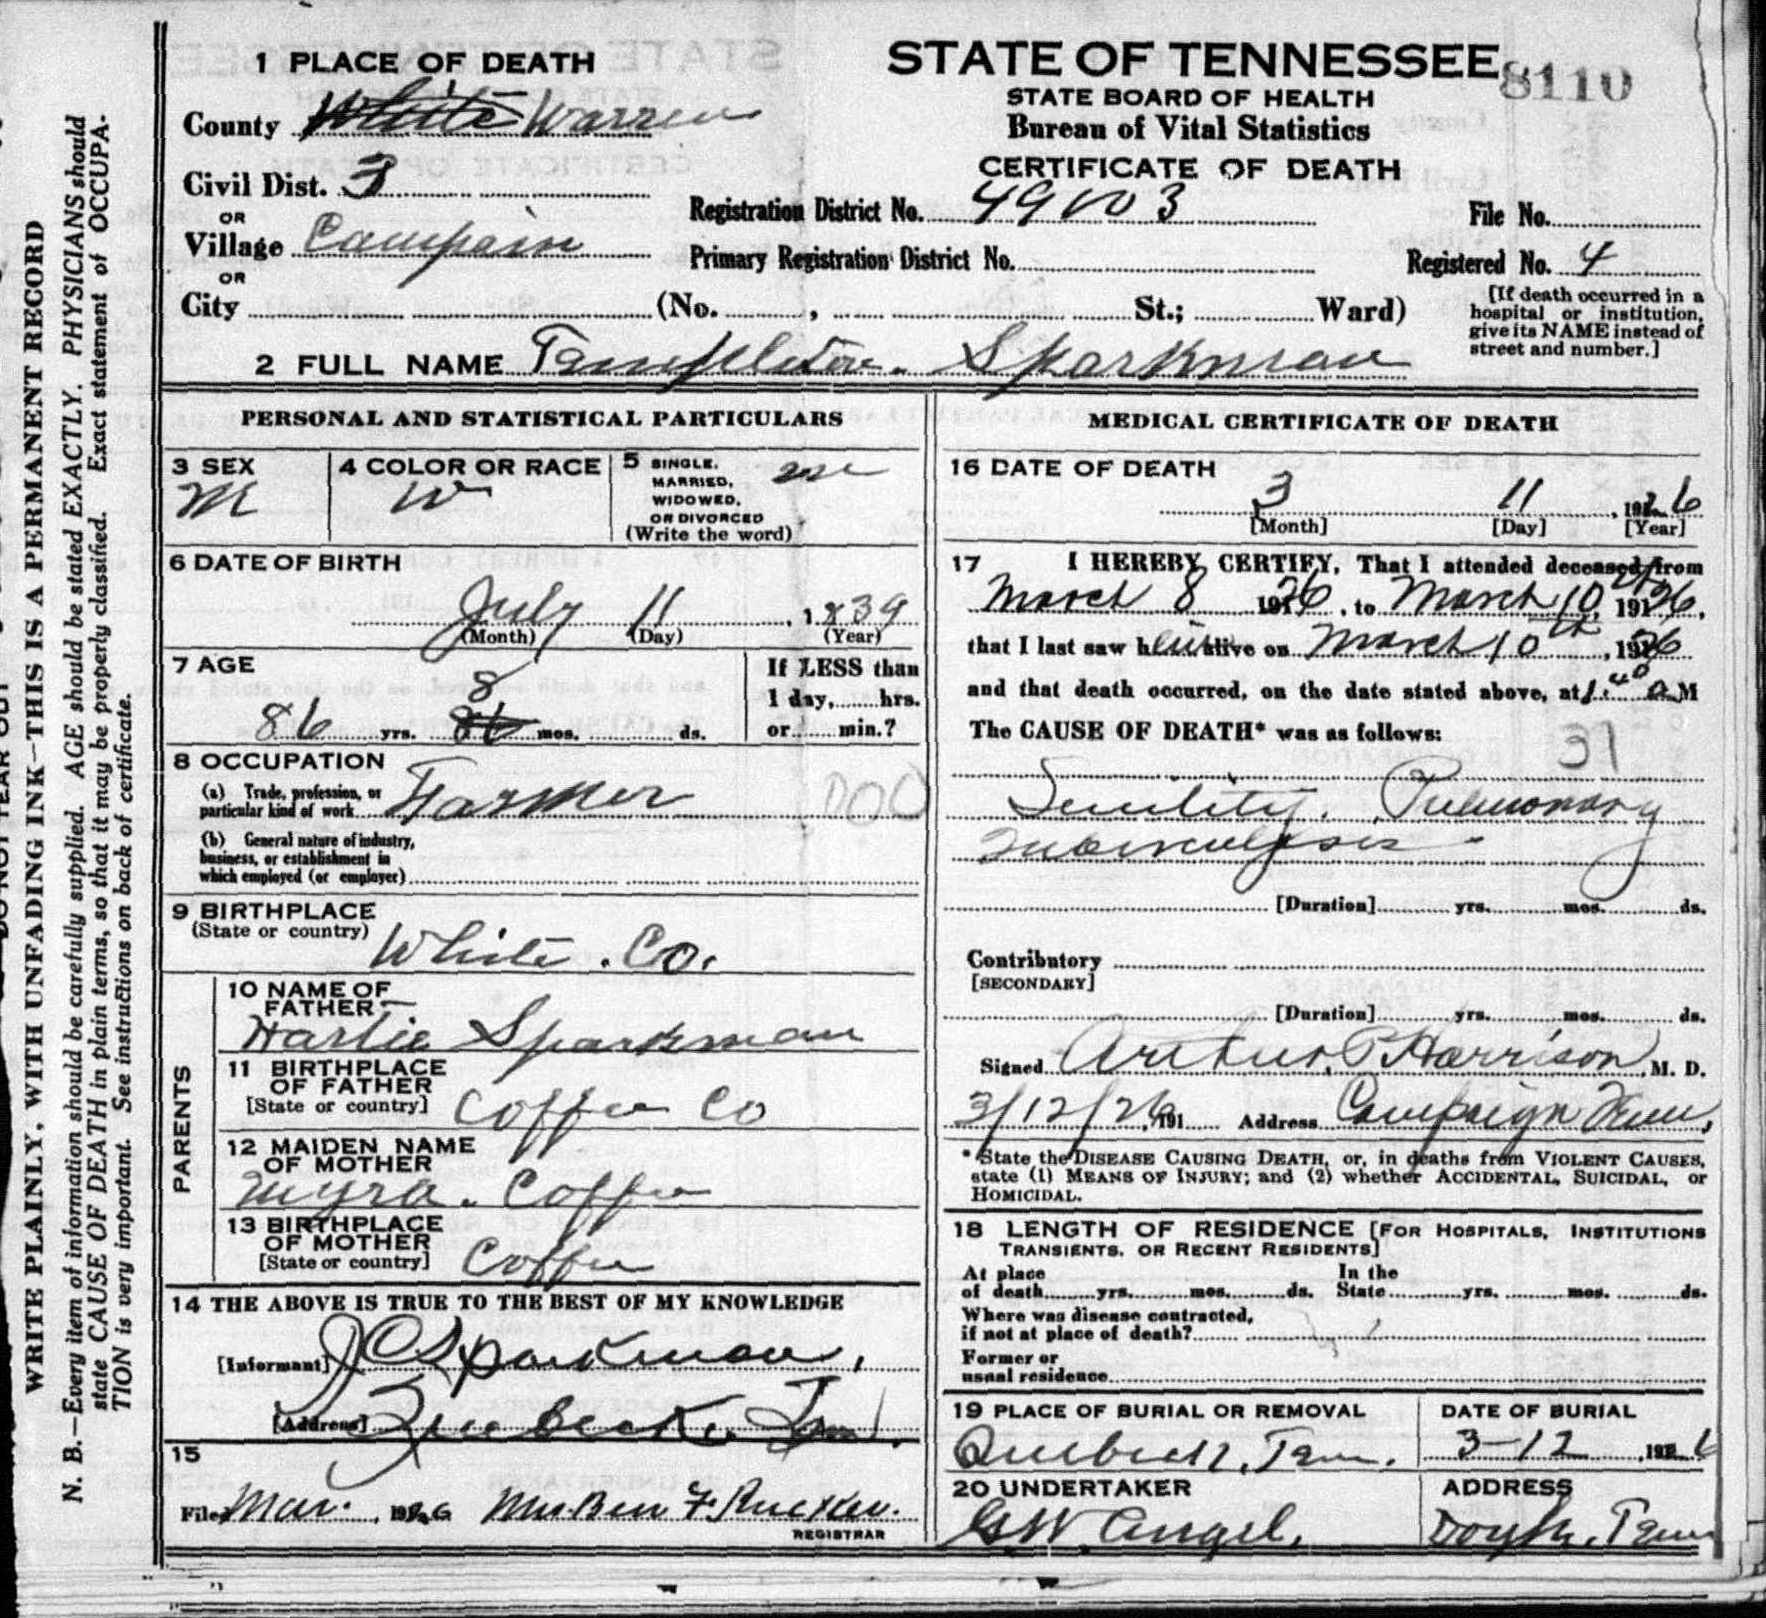 STATE OF TENNESSEE
8110
STATE BOARD OF HEALTH
Bureau of Vital Statistics
CERTIFICATE OF DEATH
1 PLACE OF DEATH
County White Warren
Civil Dist. 3
OR
Village Campain
OR
City (No. , St.; Ward)
Registration District No. 49 3
Primary Registration District No.
File No.
Registered No. 4
[If death occurred in a
hospital or institution,
give its NAME instead of
street and number.]
2 FULL NAME Templeton. Sparkman
PERSONAL AND STATISTICAL PARTICULARS
3 SEX
M
4 COLOR OR RACE
W
5 SINGLE,
MARRIED,
WIDOWED,
OR DIVORCED
(Write the word)
6 DATE OF BIRTH
July 11 , 1839
(Month) (Day) (Year)
7 AGE
86 yrs. 8 mos. ds.
If LESS than
1 day, hrs.
or min.?
8 OCCUPATION
(a) Trade, profession, or
particular kind of work Farmer
(b) General nature of industry,
business, or establishment in
which employed (or employer)
9 BIRTHPLACE
(State or country) White. Co.
PARENTS
10 NAME OF
FATHER
Harlie Sparkman
11 BIRTHPLACE
OF FATHER
[State or country] Coffee Co
12 MAIDEN NAME
OF MOTHER
Myra. Coffee
13 BIRTHPLACE
OF MOTHER
[State or country] Coffee
14 THE ABOVE IS TRUE TO THE BEST OF MY KNOWLEDGE
[Informant] J C Sparkman,
[Address] Quebeck, Tenn.
15
Filed Mar. , 1926 Mrs Ben F. Rucker.
REGISTRAR
MEDICAL CERTIFICATE OF DEATH
16 DATE OF DEATH
3 11 , 1926
[Month] [Day] [Year]
17 I HEREBY CERTIFY, That I attended deceased from
March 8 1926, to March 10th, 1926,
that I last saw him alive on March 10th, 1926
and that death occurred, on the date stated above, at 1:40 a M
The CAUSE OF DEATH* was as follows:
31
Senility. Pulmonary
Tuberculosis
[Duration] yrs. mos. ds.
Contributory
[SECONDARY]
[Duration] yrs. mos. ds.
Signed Arthur P Harrison, M. D.
3/12/26, 191 Address Campaign Tenn.
* State the DISEASE CAUSING DEATH, or, in deaths from VIOLENT CAUSES,
state (1) MEANS OF INJURY; and (2) whether ACCIDENTAL, SUICIDAL, or
HOMICIDAL.
18 LENGTH OF RESIDENCE [FOR HOSPITALS, INSTITUTIONS
TRANSIENTS, OR RECENT RESIDENTS]
At place
of death yrs. mos. ds.
In the
State yrs. mos. ds.
Where was disease contracted,
if not at place of death?
Former or
usual residence
19 PLACE OF BURIAL OR REMOVAL
Quebeck, Tenn.
DATE OF BURIAL
3-12 , 1926
20 UNDERTAKER
G.W. Angel.
ADDRESS
Doyle, Tenn
WRITE PLAINLY, WITH UNFADING INK—THIS IS A PERMANENT RECORD
N. B.—Every item of information should be carefully supplied. AGE should be stated EXACTLY. PHYSICIANS should
state CAUSE OF DEATH in plain terms, so that it may be properly classified. Exact statement of OCCUPA-
TION is very important. See instructions on back of certificate.